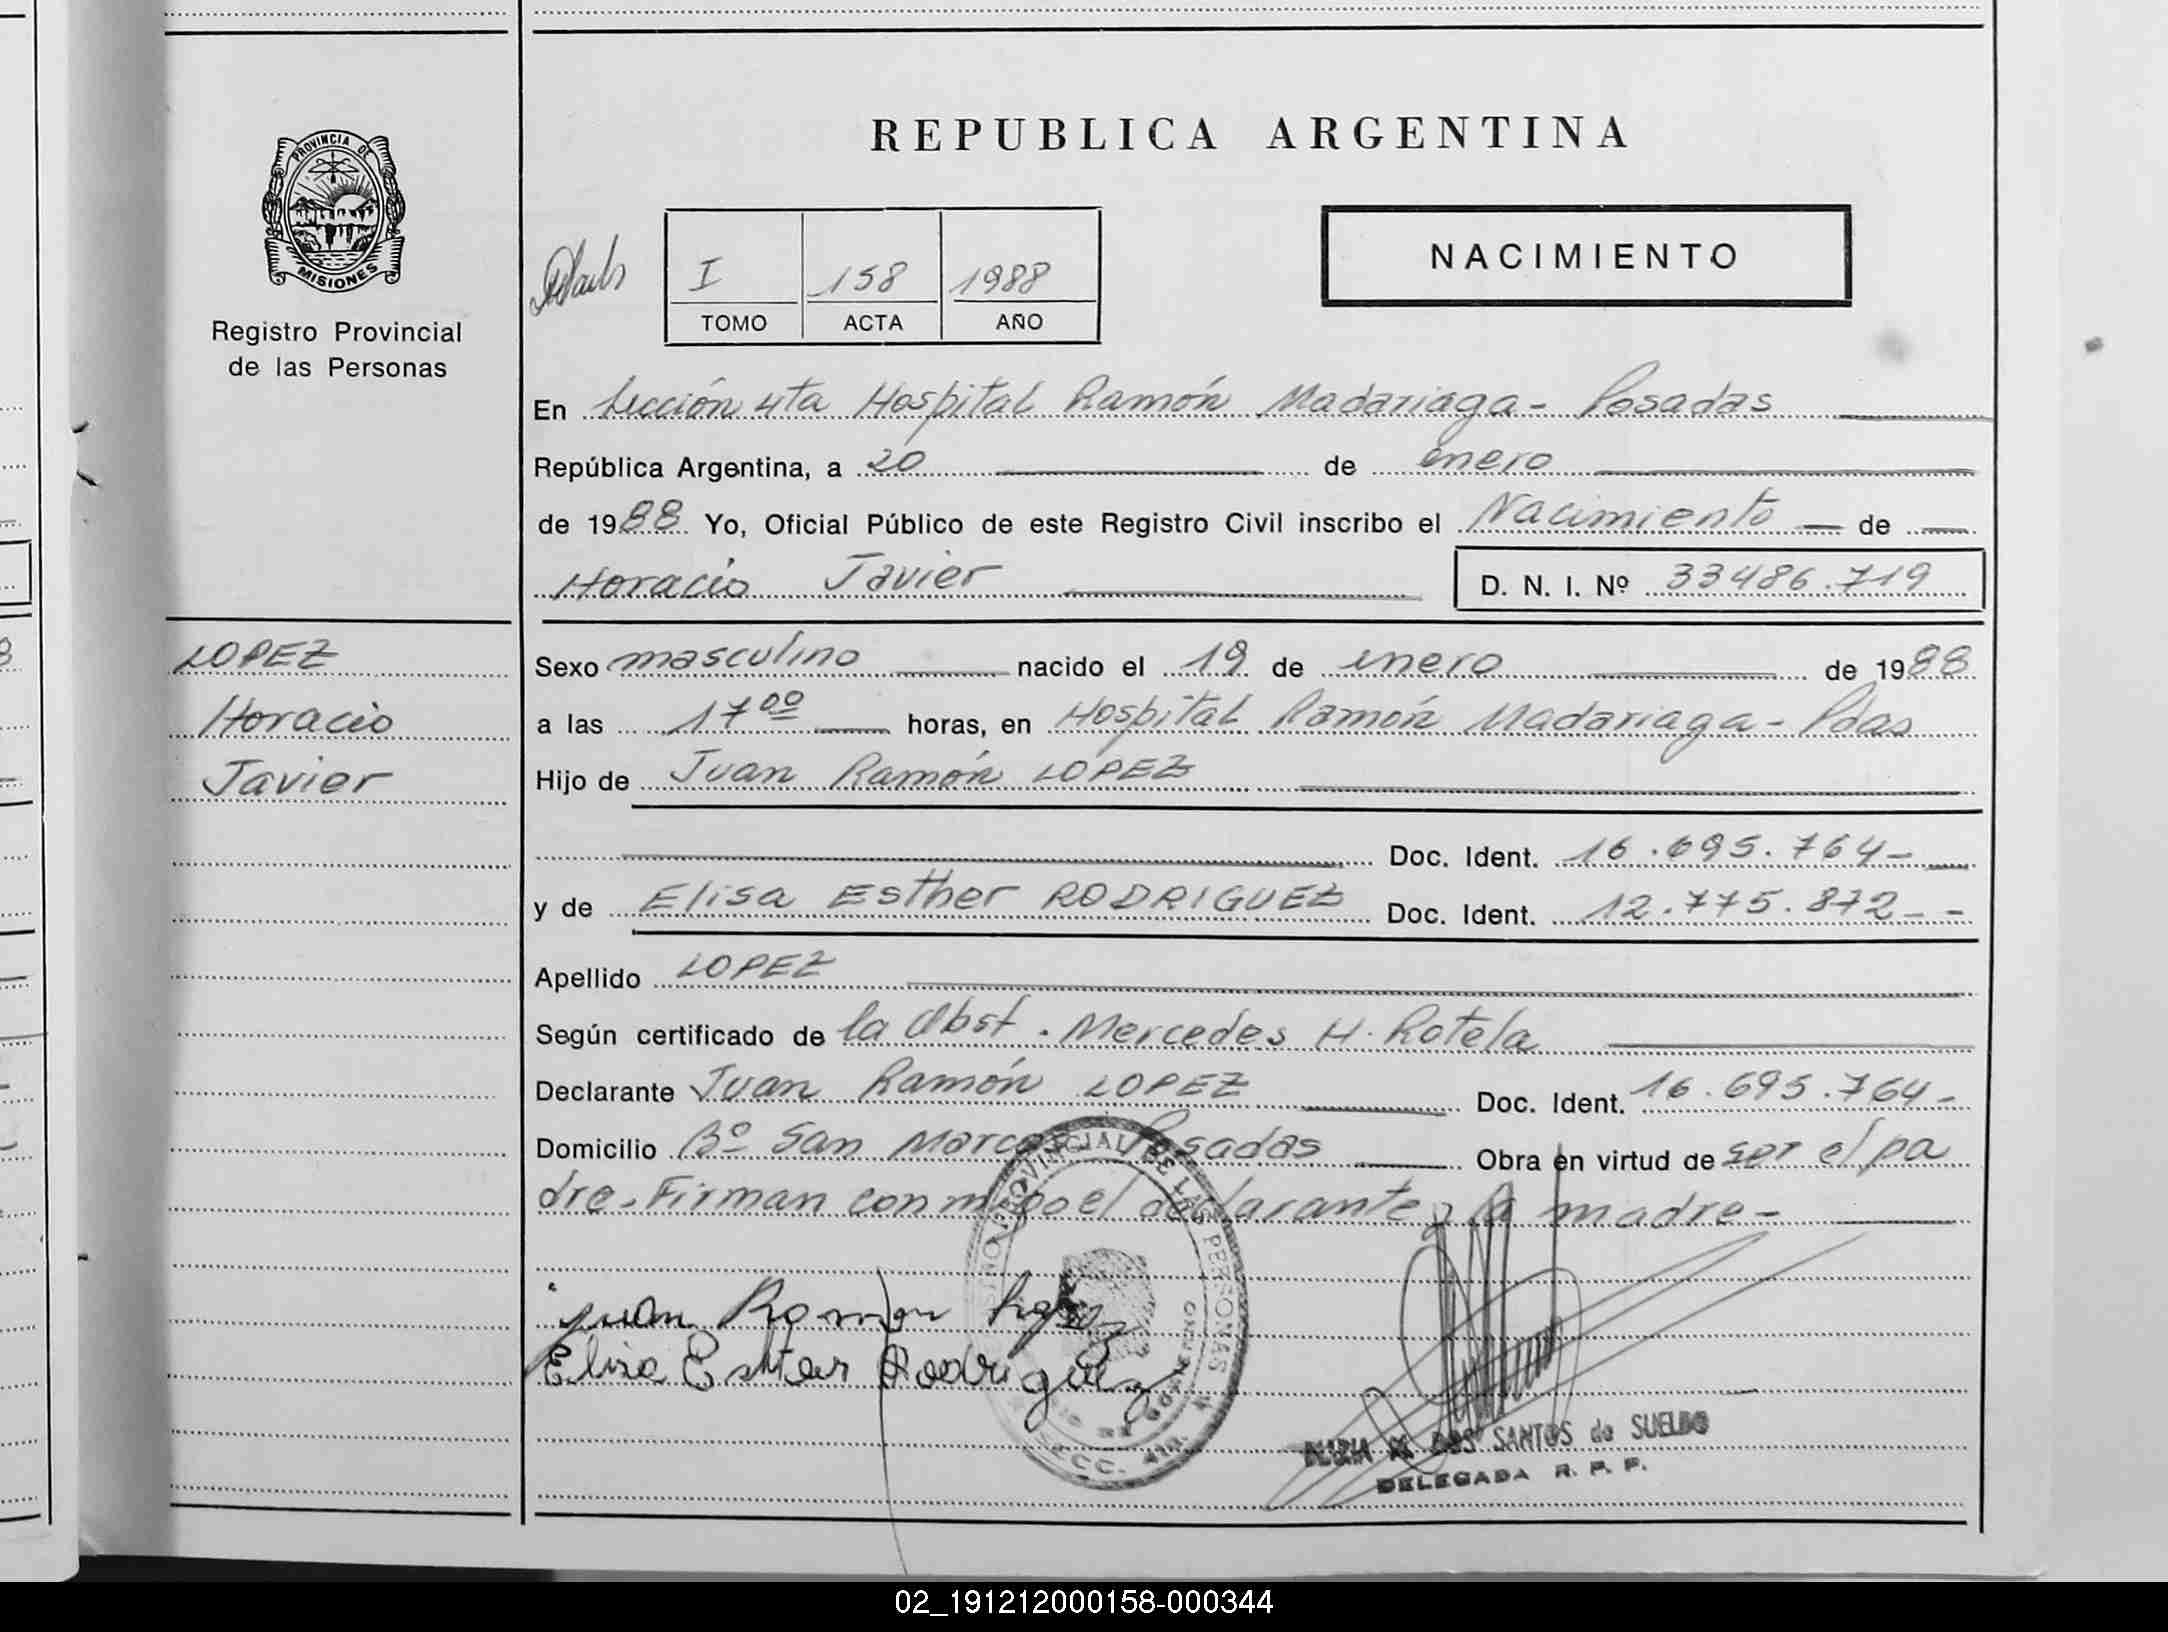 REPUBLICA ARGENTINA
PROVINCIA DE
MISIONES
Registro Provincial
de las Personas
I 158 1988
TOMO ACTA AÑO
NACIMIENTO
En Sección 4ta Hospital Ramón Madariaga - Posadas
República Argentina, a 20 de enero
de 1988 Yo, Oficial Público de este Registro Civil inscribo el Nacimiento de
Horacio Javier D. N. I. Nº 33486.719
LOPEZ
Horacio
Javier
Sexo masculino nacido el 19 de enero de 1988
a las 17 00 horas, en Hospital Ramón Madariaga - Pdas
Hijo de Juan Ramón LOPEZ
Doc. Ident. 16.695.764-
y de Elisa Esther RODRIGUEZ Doc. Ident. 12.775.872--
Apellido LOPEZ
Según certificado de la Obst. Mercedes H. Rotela
Declarante Juan Ramón LOPEZ Doc. Ident. 16.695.764-
Domicilio Bº San Marcos Posadas Obra en virtud de ser el pa
dre. Firman conmigo el declarante y la madre-
Juan Ramon
Elisa Esther Rodriguez
PROVINCIAL DE LAS PERSONAS
SECC. 4ta.
DOS SANTOS de SUELDO
DELEGADA R. P. P.
02_191212000158-000344